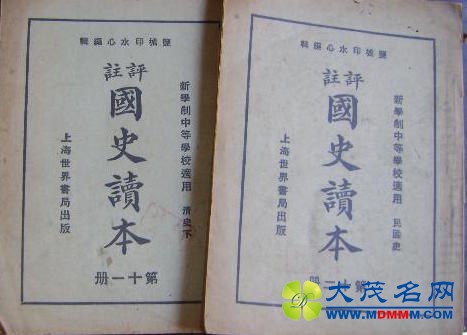 鹽城印水心編輯
新學制中等學校適用 清史下
評註
國史讀本
上海世界書局出版
第十一册
鹽城印水心編輯
新學制中等學校適用 民國史
評註
國史讀本
上海世界書局出版
第十二册
大茂名网
www.MDMMM.com